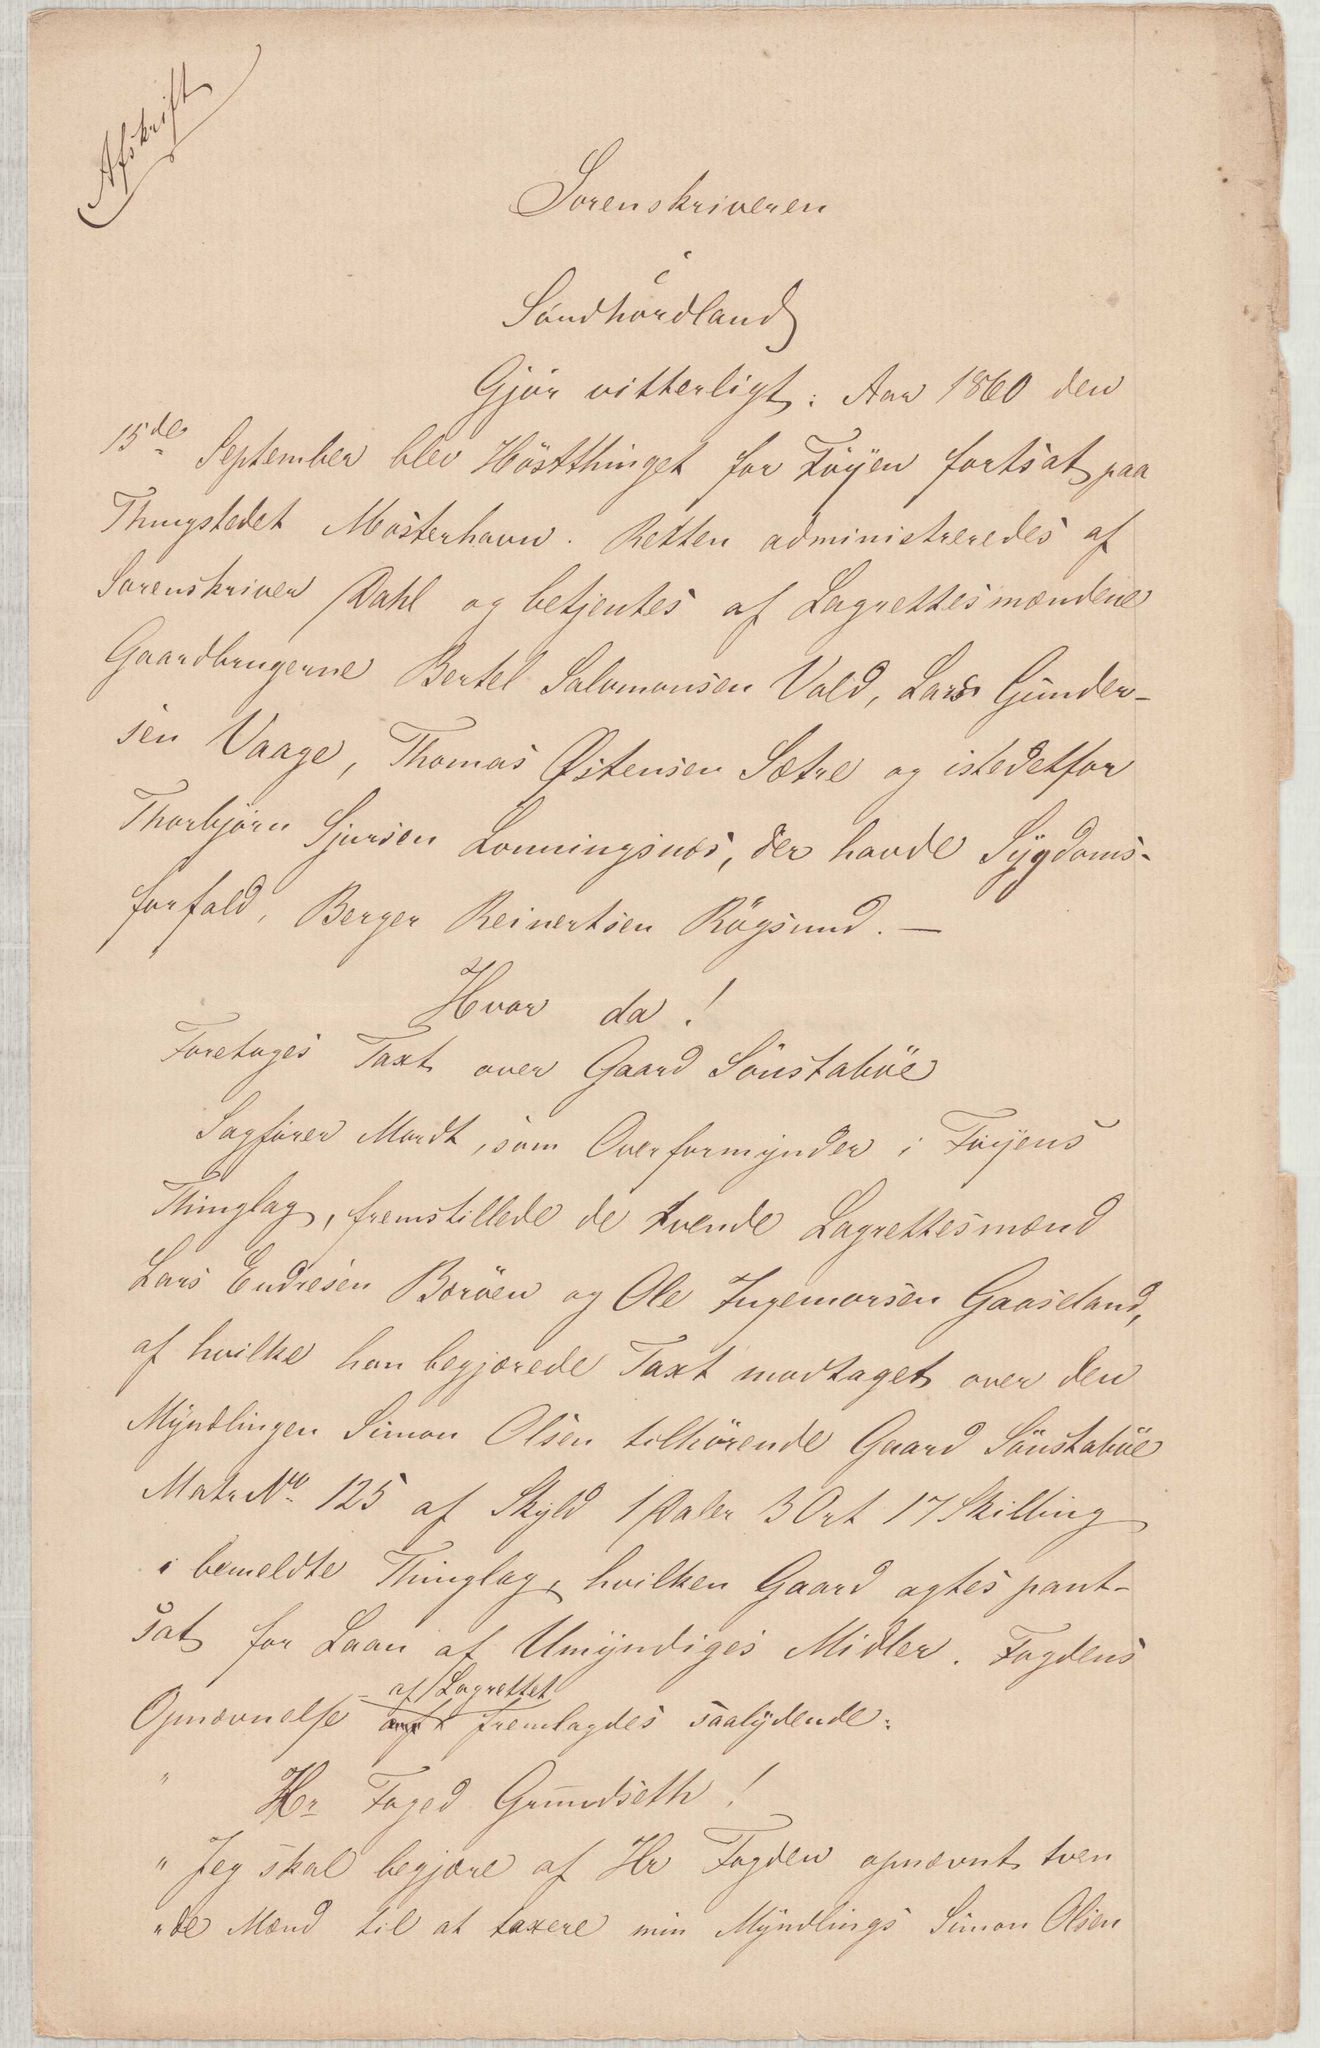 Afskrift
Sorenskriveren
i
Söndhordland
Gjör vitterligt: Aar 1860 den
15de September blev Höstthinget for Föÿen fortsat paa
Thingstedet Mosterhavn. Retten administreredes af
Sorenskriver Dahl og betjentes af Lagrettesmændene
Gaardbrugerne Bertel Salomonsen Vold, Lars Gunder-
sen Vaage, Thomas Østensen Sætre og istedetfor
Thorbjørn Sjursen Lonningsnæs, der havde Sÿgdoms-
forfald, Berger Reinertsen Rögsund. —
Hvor da!
Foretoges Taxt over Gaard Sönstaböe
Sagfører Mordt, som Overformÿnder i Föÿens
Thinglag, fremstillede de tvende Lagrettesmænd
Lars Endresen Boröen og Ole Ingemorsen Gaaseland,
af hvilke han begjærede Taxt modtaget over den
Mÿndlingen Simon Olsen tilhörende Gaard Sönstaböe
Matr No 125 af Skÿld 1 Daler 3 Ort 17 Skilling
i bemeldte Thinglag, hvilken Gaard agtes pant-
sat for Laan af Umÿndiges Midler. Fogdens
af Lagrettet
Opnævnelse fremlagdes saalÿdende:
" Hr Foged Grundseth!
" Jeg skal begjære af Hr Fogden opnævnt tven
" de Mænd til at taxere min Mÿndlings Simon Olsen